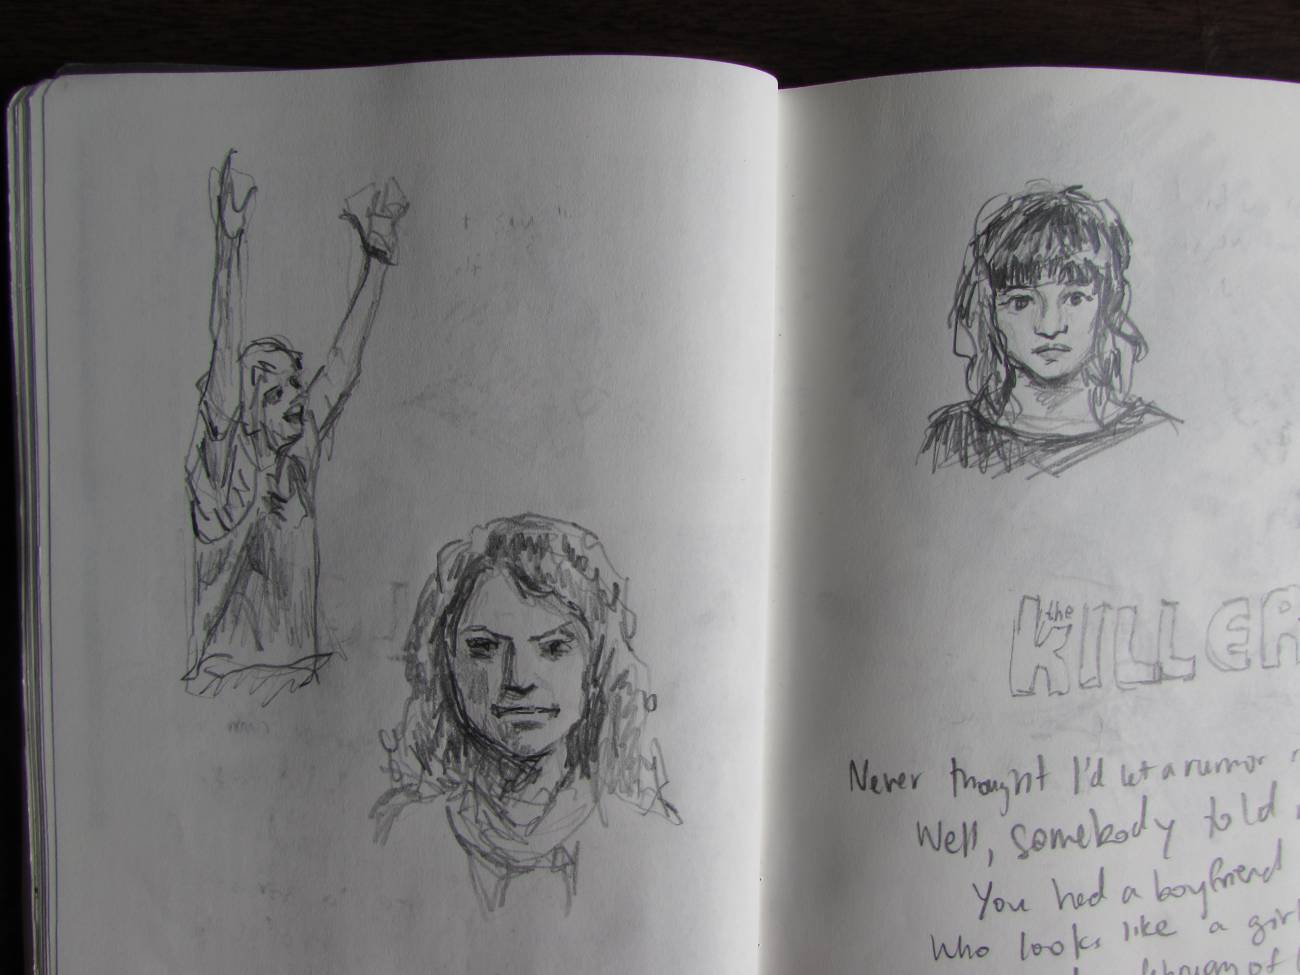 the
KILLER
Never thought I'd let a rumor
Well, somebody told
You had a boyfriend
Who looks like a girl
of